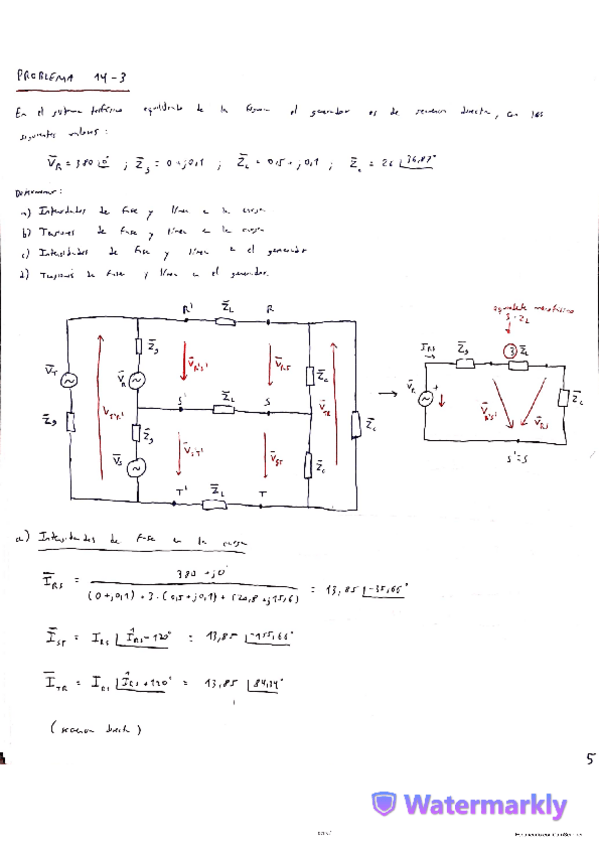 PROBLEMA 14-3
En el sistema trifásico equilibrado de la figura el generador es de secuencia directa, con los
siguientes valores:
V̄R = 380 |0° ; Z̄g = 0+j0,1 ; Z̄L = 0,5 + j0,1 ; Z̄c = 26 |36,87°
Determinar:
a) Intensidades de fase y línea en la carga
b) Tensiones de fase y línea en la carga
c) Intensidades de fase y línea en el generador
d) Tensiones de fase y línea en el generador.
equivalente monofásico
3·Z̄L
R' Z̄L R
ĪRS Z̄g 3 Z̄L
V̄T Z̄g V̄R V̄R'S' V̄RS Z̄c
Z̄g V̄T'R' S' Z̄L S V̄TR Z̄c
V̄R V̄R'S' V̄RS Z̄c
Z̄g V̄S V̄S'T' V̄ST Z̄c
S'=S
T' Z̄L T
a) Intensidades de fase en la carga
ĪRS = 380 + j0 / (0+j0,1) + 3·(0,5+j0,1) + (20,8+j15,6) = 13,85 |-35,66°
ĪST = IRS |ÎRS-120° = 13,85 |-155,66°
ĪTR = IRS |ÎRS+120° = 13,85 |84,34°
(secuencia directa)
5
Watermarkly